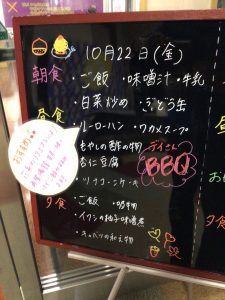 10月22日(金)
朝食
・ご飯 ・味噌汁・牛乳
・白菜炒め ・ぶどう缶
昼食
・ルーローハン ・ワカメスープ
・もやしの酢の物
・杏仁豆腐
デイさん
BBQ
おすすめ
・ツナコーンケーキ
夕食
・ご飯 ・吸物
・イワシの柚子味噌煮
・キャベツの和え物
夕食